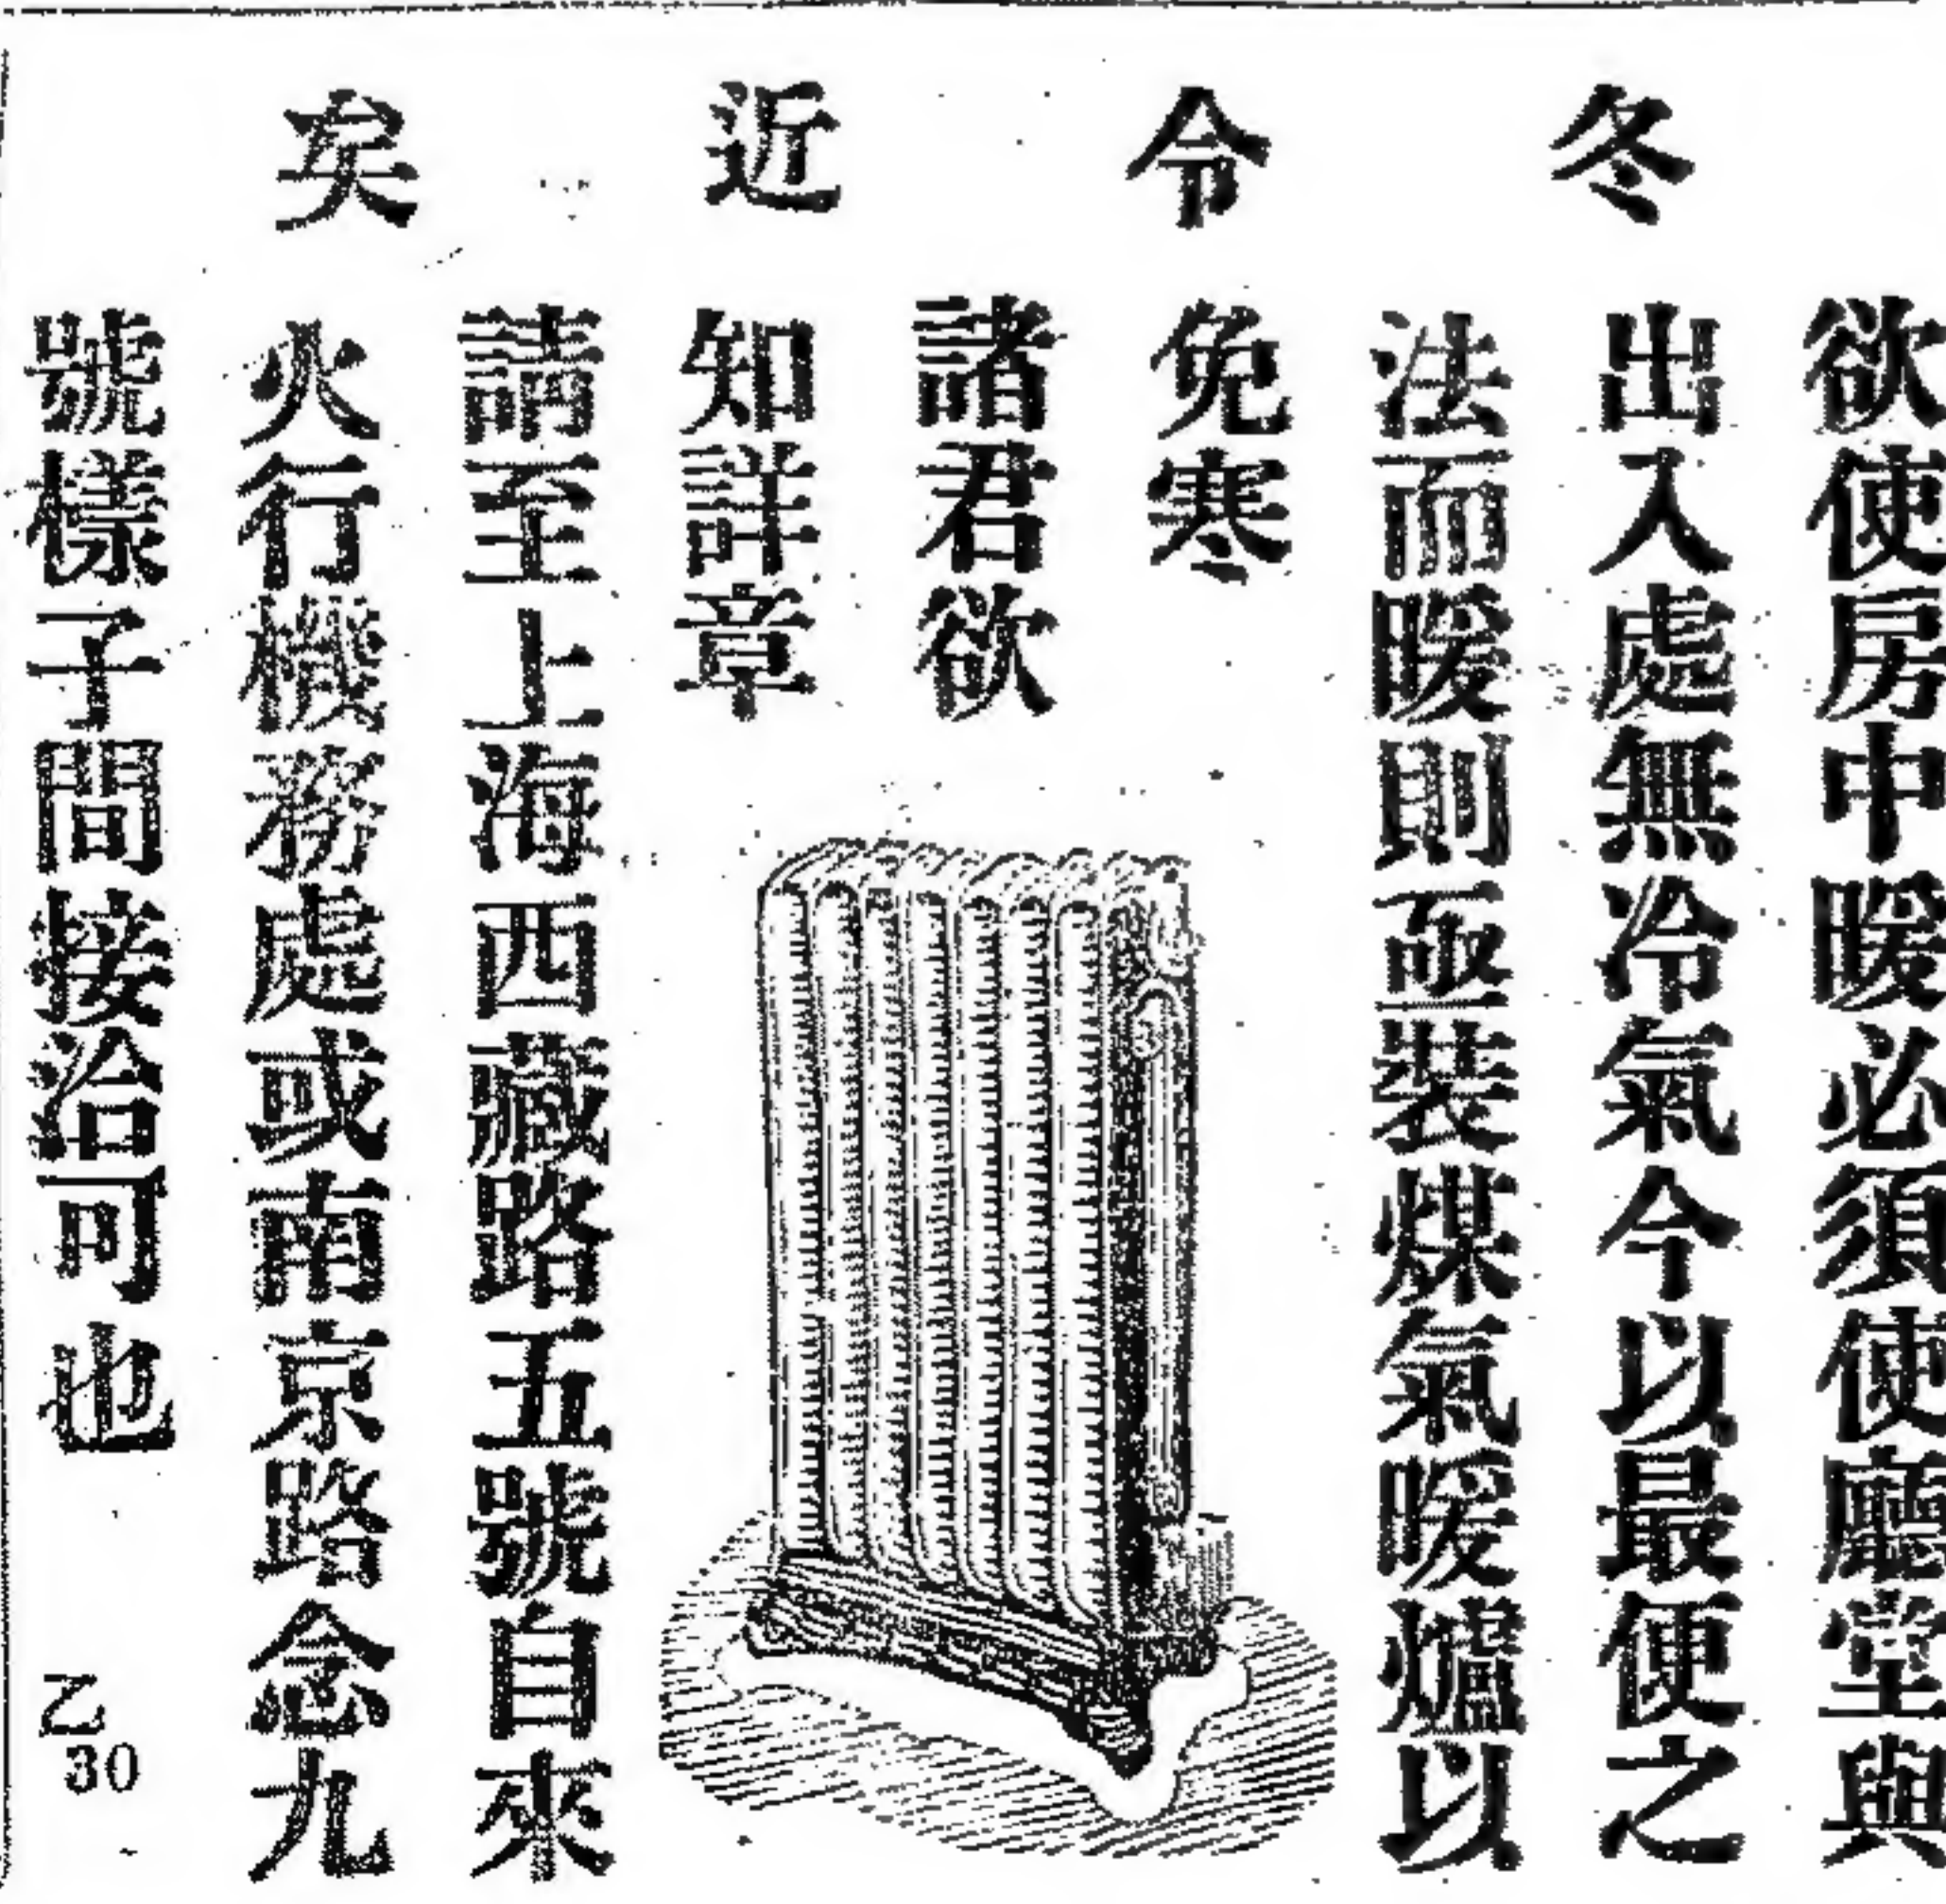 冬令近矣
欲使房中暖必須使廳堂與
出入處無冷氣今以最便之
法而暖則亟裝煤氣暖爐以
免寒
諸君欲
知詳章
請至上海西藏路五號自來
火行機務處或南京路念九
號樣子間接洽可也
乙30